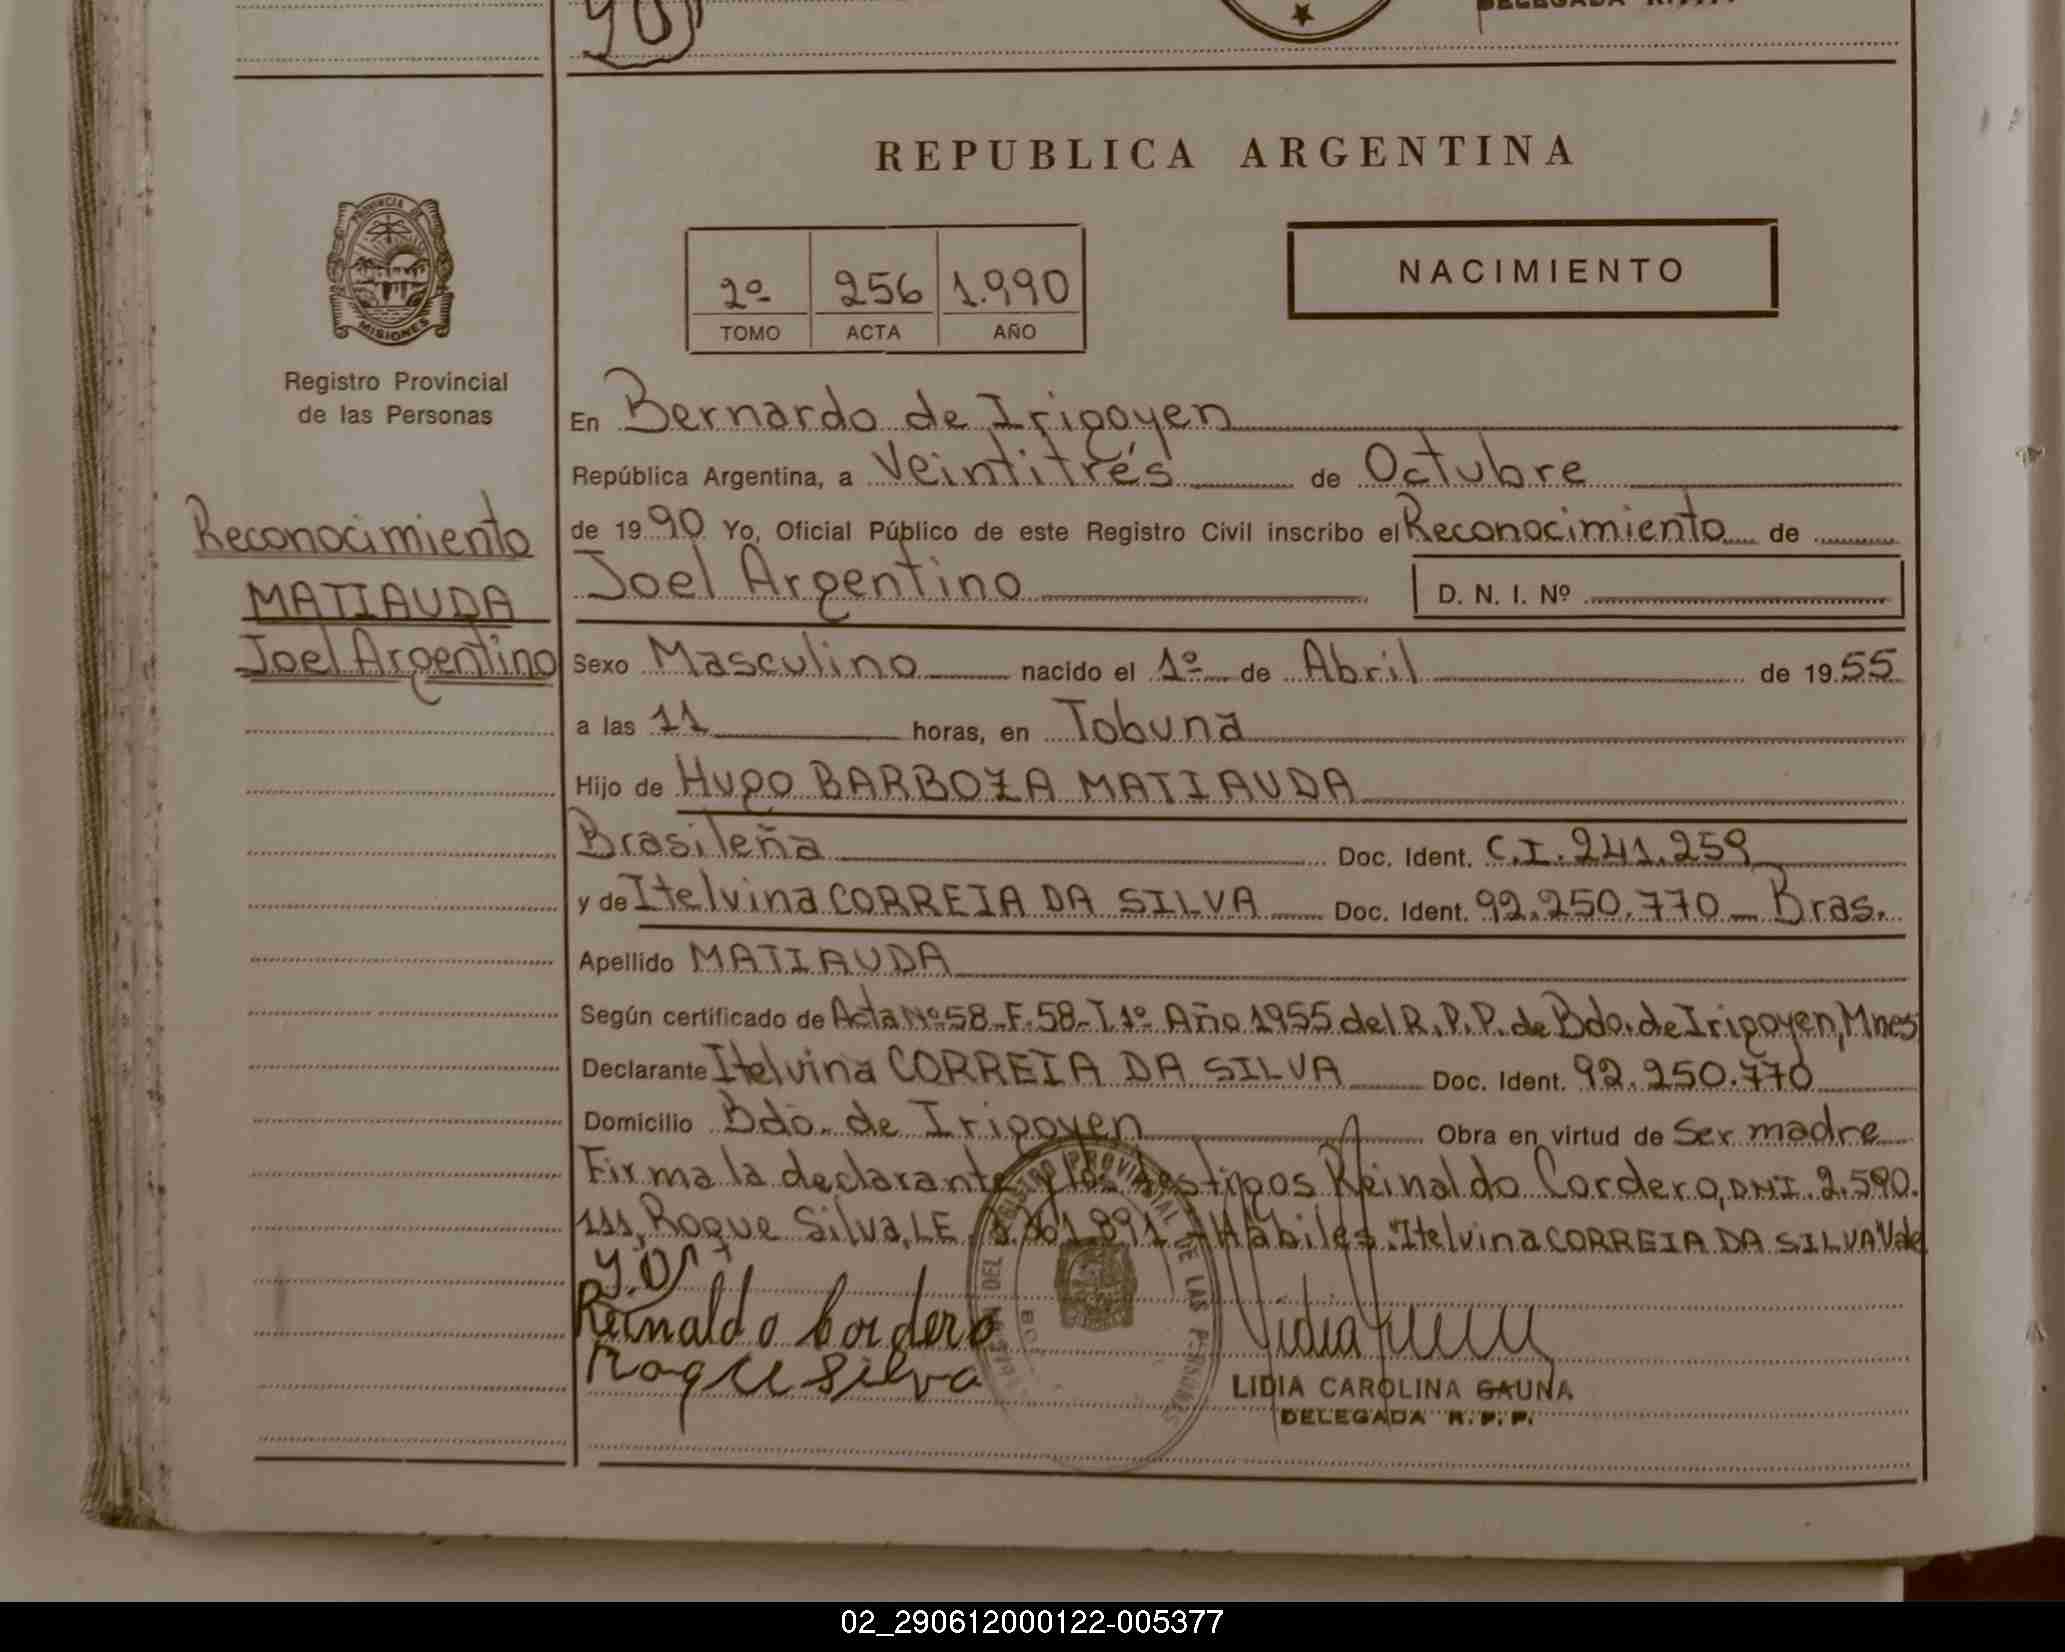 DELEGADA R.P.P.
REPUBLICA ARGENTINA
PROVINCIA DE
MISIONES
2º 256 1.990
TOMO ACTA AÑO
NACIMIENTO
Registro Provincial
de las Personas
Reconocimiento
MATIAUDA
Joel Argentino
En Bernardo de Irigoyen
República Argentina, a Veintitrés de Octubre
de 1990 Yo, Oficial Público de este Registro Civil inscribo el Reconocimiento de
Joel Argentino D. N. I. Nº
Sexo Masculino nacido el 1º de Abril de 1955
a las 11 horas, en Tobuna
Hijo de Hugo BARBOZA MATIAUDA
Brasileña Doc. Ident. C.I. 241.259
y de Itelvina CORREIA DA SILVA Doc. Ident. 92.250.770 Bras.
Apellido MATIAUDA
Según certificado de Acta Nº 58-F.58-T.1º Año 1955 del R.P.P. de Bdo. de Irigoyen, Mnes
Declarante Itelvina CORREIA DA SILVA Doc. Ident. 92.250.770
Domicilio Bdo. de Irigoyen Obra en virtud de Ser madre
Firma la declarante y los testigos Reinaldo Cordero, DNI. 2.590.
111, Roque Silva, LE. Hábiles. "Itelvina CORREIA DA SILVA" Vale
Reinaldo Cordero
Roque Silva
LIDIA CAROLINA GAUNA
DELEGADA R.P.P.
02_290612000122-005377